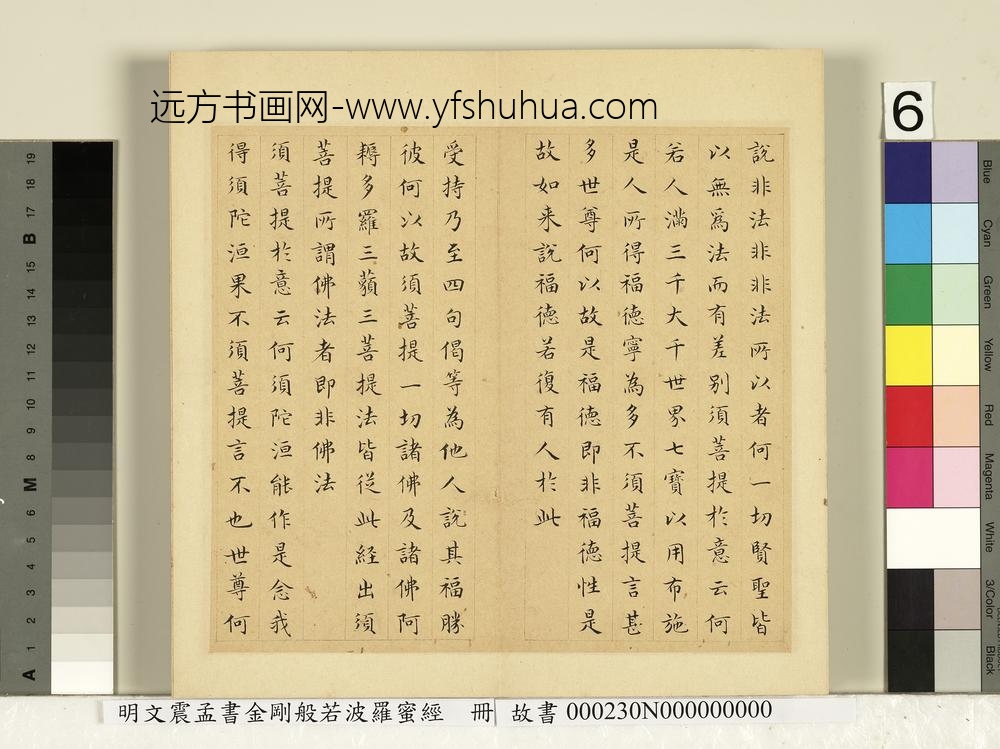 远方书画网-www.yfshuhua.com
說非法非非法所以者何一切賢聖皆
以無爲法而有差别須菩提於意云何
若人滿三千大千世界七寶以用布施
是人所得福德寧為多不須菩提言甚
多世尊何以故是福德即非福德性是
故如来說福德若復有人於此
受持乃至四句偈等為他人說其福勝
彼何以故須菩提一切諸佛及諸佛阿
耨多羅三藐三菩提法皆從此経出須
菩提所謂佛法者即非佛法
須菩提於意云何須陀洹能作是念我
得須陀洹果不須菩提言不也世尊何
6
Blue
Cyan
Green
Yellow
Red
Magenta
White
3/Color
Black
19
18
17
B
15
14
13
12
11
10
9
8
M
6
5
4
3
2
1
A
明文震孟書金剛般若波羅蜜經 冊 故書 000230N000000000